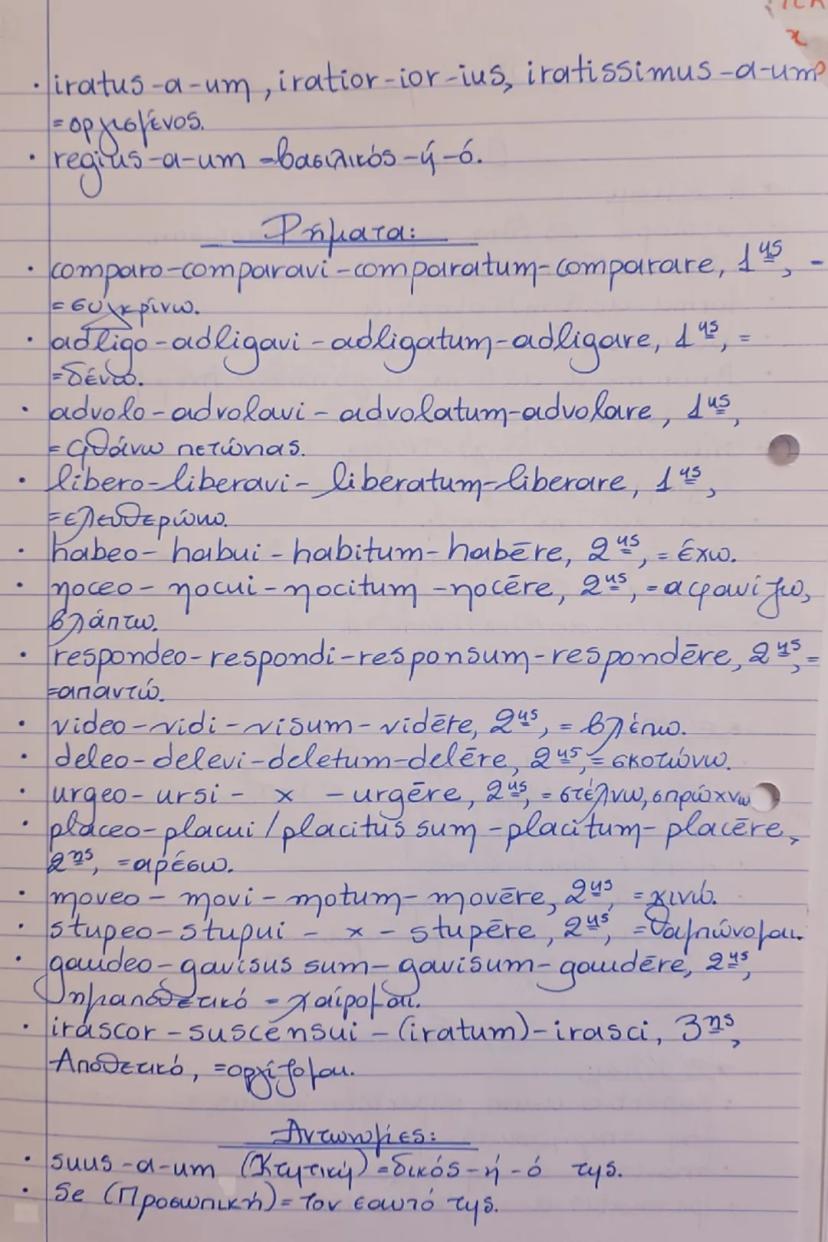 · iratus-a-um, iratior-ior-ius, iratissimus-a-um
= οργισμένος.
· regius-a-um = βασιλικός-ή-ό.
Ρήματα:
· comparo-comparavi-comparatum-comparare, 1ης, -
= συγκρίνω.
· adligo-adligavi-adligatum-adligare, 1ης, =
=δένω.
· advolo-advolavi-advolatum-advolare, 1ης,
= φθάνω πετώντας.
· libero-liberavi-liberatum-liberare, 1ης,
=ελευθερώνω.
· habeo-habui-habitum-habēre, 2ης, = έχω.
· noceo-nocui-nocitum-nocēre, 2ης, =αφανίζω,
βλάπτω.
· respondeo-respondi-responsum-respondēre, 2ης, =
=απαντώ.
· video-vidi-visum-vidēre, 2ης, = βλέπω.
· deleo-delevi-deletum-delēre, 2ης, = σκοτώνω.
· urgeo-ursi- x -urgēre, 2ης, =στέλνω, σπρώχνω
· placeo-placui/placitus sum-placitum-placēre,
2ης, =αρέσω.
· moveo-movi-motum-movēre, 2ης, =κινώ.
· stupeo-stupui- x -stupēre, 2ης, =θαμπώνομαι.
· gaudeo-gavisus sum-gavisum-gaudēre, 2ης,
ημιαποθετικό = χαίρομαι.
· irascor-suscensui-(iratum)-irasci, 3ης,
Αποθετικό, =οργίζομαι.
Αντωνυμίες:
· suus-a-um (Κτητική) =δικός-ή-ό της.
· se (Προσωπική)= τον εαυτό της.